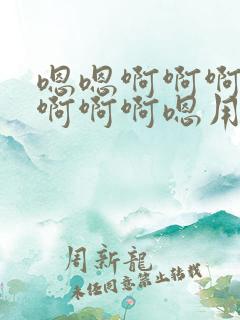 嗯嗯啊啊啊
啊啊啊嗯用
周新龍
未经同意禁止转载